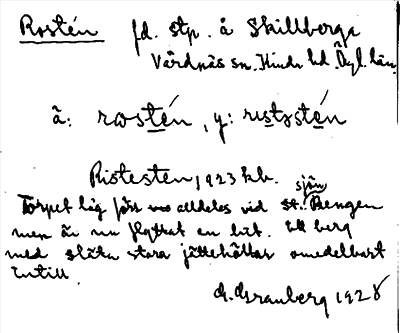 Rostén fd. stp. å Skillberga
Vårdnäs sn. Kinds hd Ögl. län.
ä: rωstén, y: ristɜstén
Ristesten 1923 kb.
Torpet låg förr vos alldeles vid st. sjön Rengen
men är nu flyttat en bit. Ett berg
med släta stora jättehällar omedelbart
intill.
G. Granberg 1928